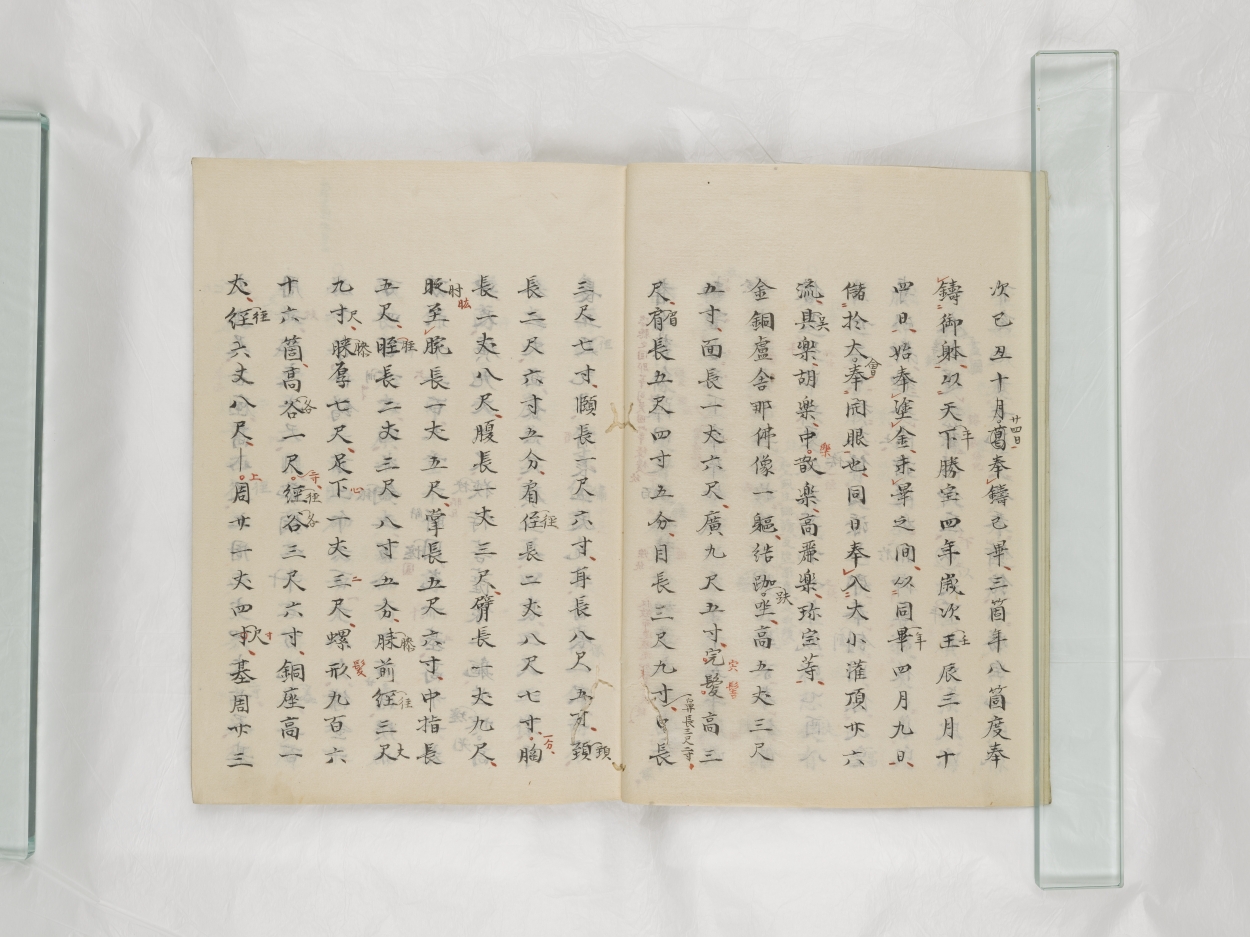 次己丑十月葛奉鑄已畢三箇年八箇度奉
鑄御躰以天下勝宝四年歳次王辰三月十
四日始奉塗金未畢之間以同畢四月九日
儲於大奉開眼也同日奉入大小灌頂廿六
流具楽胡楽中散楽高麗楽珎宝等
金銅盧舎那佛像一軀結跏坐高五丈三尺
五寸面長一丈六尺廣九尺五寸完髪高三
尺肩長五尺四寸五分目長三尺九寸口長
三尺七寸頤長一尺六寸耳長八尺五寸頚
長二尺六寸五分肩径長二丈八尺七寸胸
長一丈八尺腹長一丈三尺臂長一丈九尺
至腕長一丈五尺掌長五尺六寸中指長
五尺脛長二丈三尺八寸五分膝前経三尺
九寸膝厚七尺足下一丈三尺螺形九百六
十六箇高谷一尺経谷三尺六寸銅座高一
丈経六丈八尺上周廿一丈四寸基周廿三